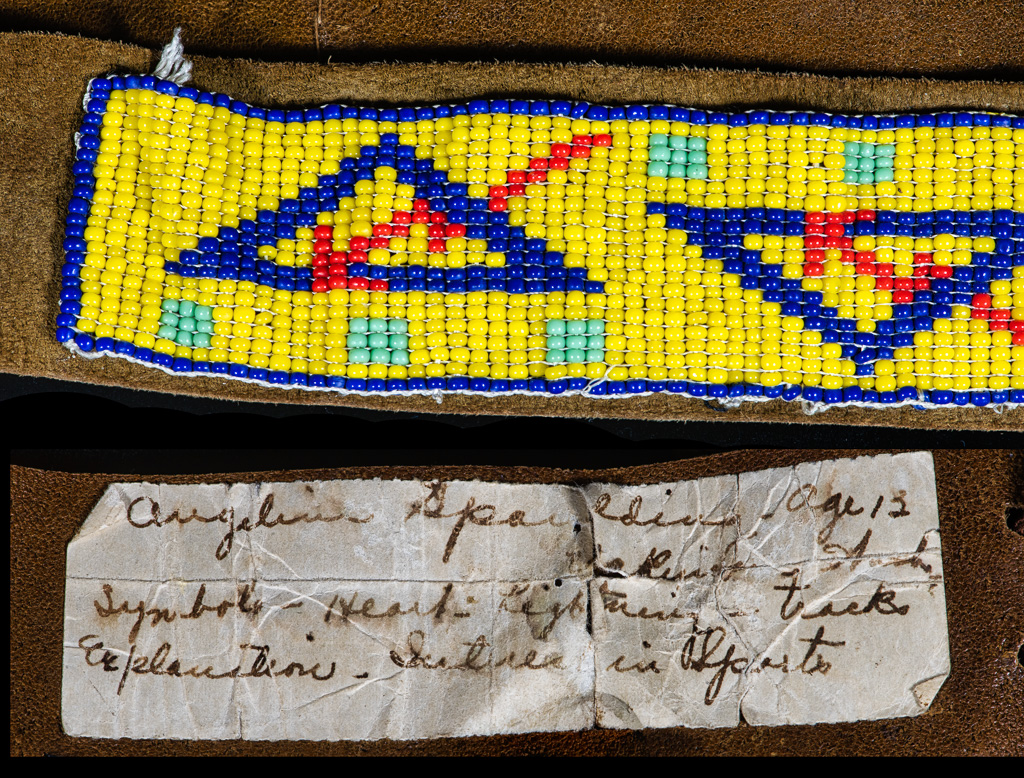 Angeline Spaulding Age 13
Symbols - Heart Lightning - tracks
Explanation - Interest in Sports